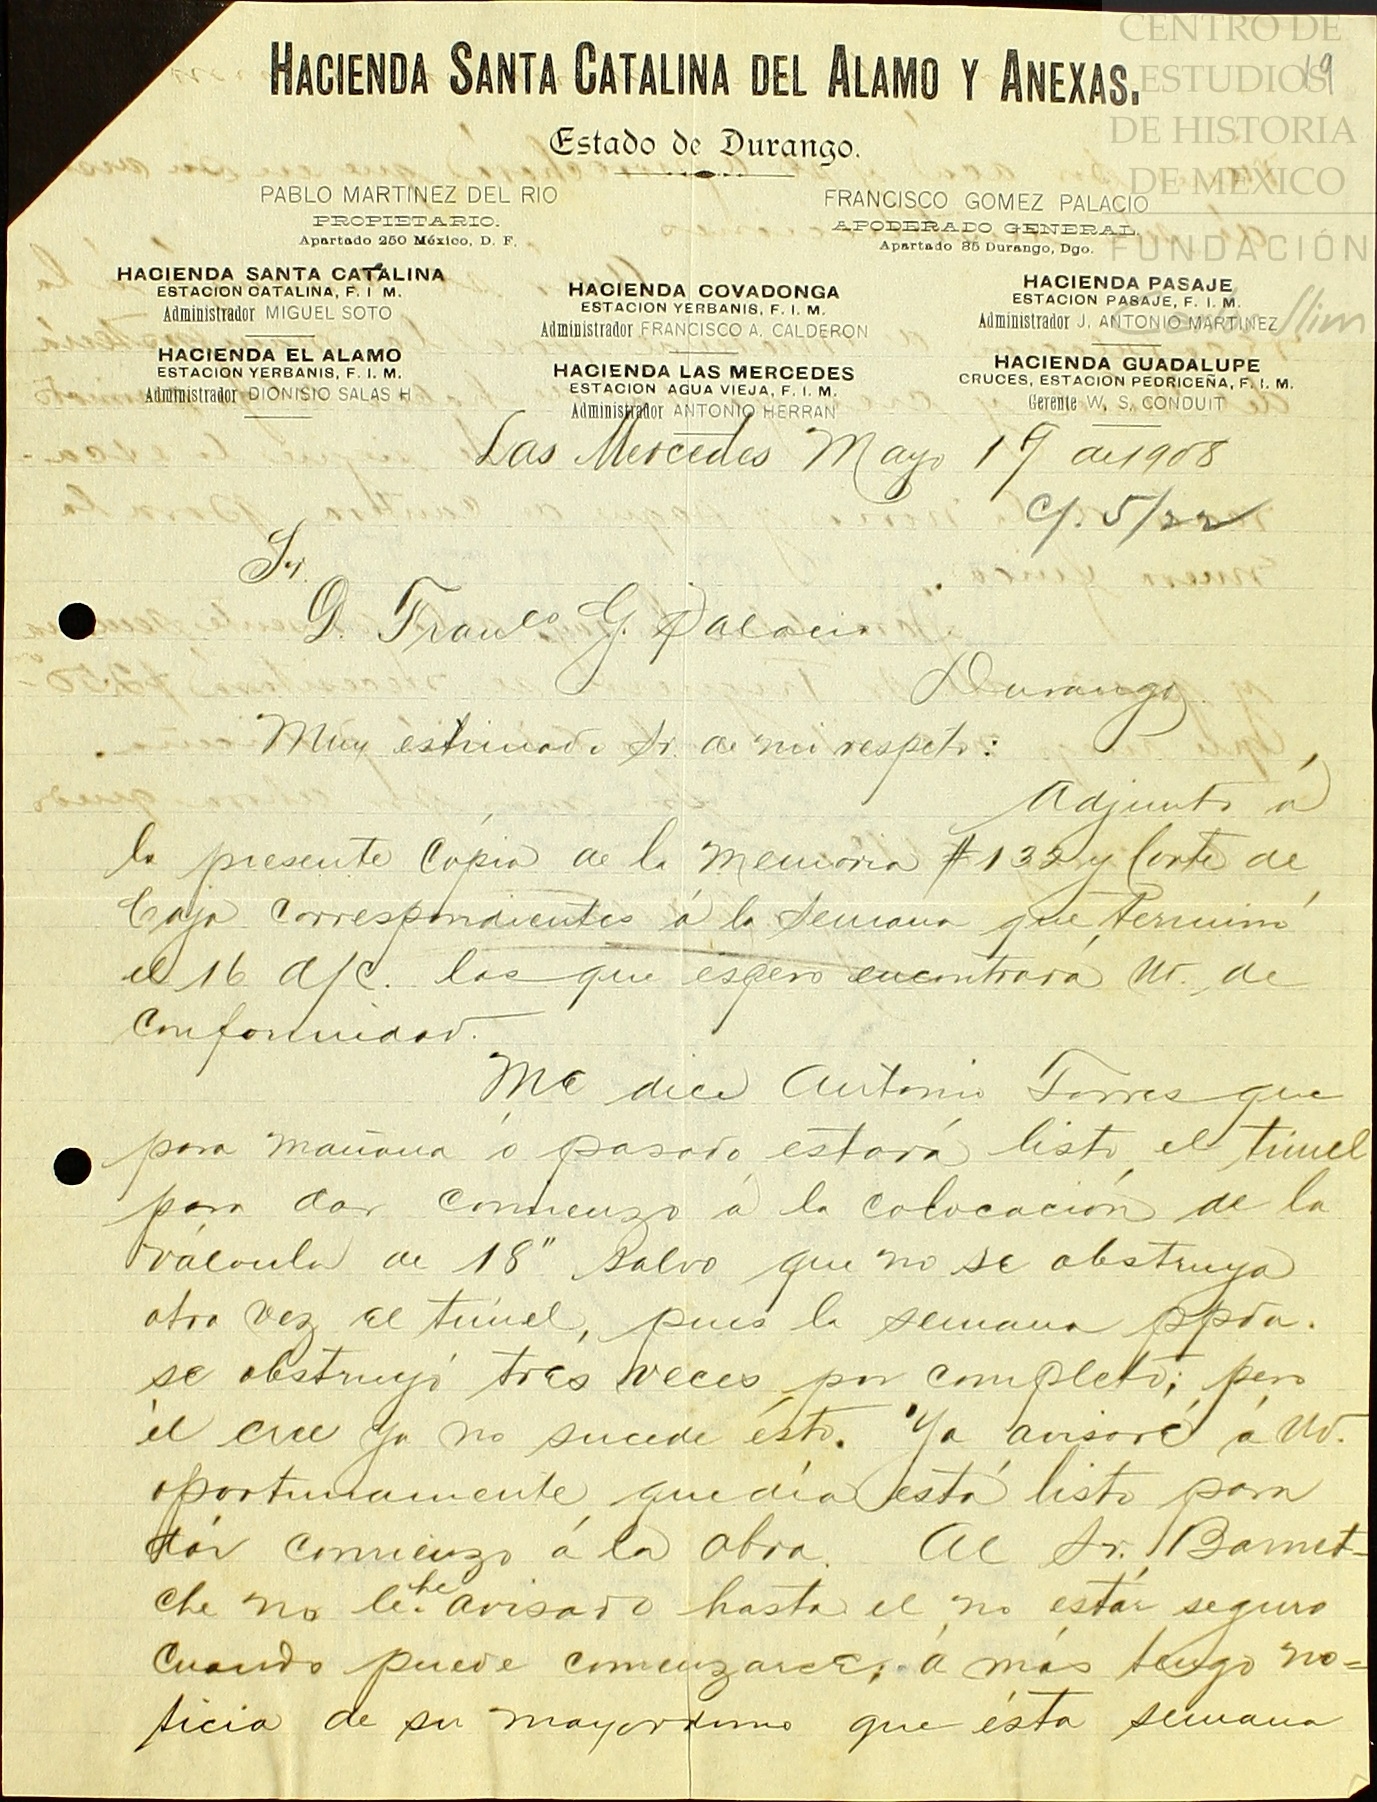 CENTRO DE
ESTUDIOS
DE HISTORIA
DE MEXICO
FUNDACIÓN
Carlos Slim
19
HACIENDA SANTA CATALINA DEL ALAMO Y ANEXAS.
Estado de Durango.
PABLO MARTINEZ DEL RIO
PROPIETARIO.
Apartado 250 México, D. F.
FRANCISCO GOMEZ PALACIO
APODERADO GENERAL.
Apartado 85 Durango, Dgo.
HACIENDA SANTA CATALINA
ESTACION CATALINA, F. I. M.
Administrador MIGUEL SOTO
HACIENDA EL ALAMO
ESTACION YERBANIS, F. I. M.
Administrador DIONISIO SALAS H
HACIENDA COVADONGA
ESTACION YERBANIS, F. I. M.
Administrador FRANCISCO A. CALDERON
HACIENDA LAS MERCEDES
ESTACION AGUA VIEJA, F. I. M.
Administrador ANTONIO HERRAN
HACIENDA PASAJE
ESTACION PASAJE, F. I. M.
Administrador J. ANTONIO MARTINEZ
HACIENDA GUADALUPE
CRUCES, ESTACION PEDRICEÑA, F. I. M.
Gerente W. S. CONDUIT
Las Mercedes Mayo 19 de 1908
C/. 5/22
Sr.
D. Franco G. Palacio
Durango.
Muy estimado Sr. de mi respeto:
Adjunto á
la presente Cópia de la Memoria #132 y Corte de
Caja correspondientes á la Semana que terminó
el 16 d/c. las que espero encontrará Ud. de
conformidad.
Me dice Antonio Torres que
para mañana ó pasado estará listo el túnel
para dar comienzo á la colocación de la
válvula de 18" salvo que no se obstruya
otra vez el túnel, pues la semana ppda.
se obstruyó tres veces por completo; pero
él cree ya no sucede ésto. Ya avisaré á Ud.
oportunamente que día está listo para
dár comienzo á la obra. Al Sr. Barnet-
che no le he avisado hasta el no estár seguro
cuando puede comenzarce; á más tengo no=
ticia de su mayordomo que ésta semana